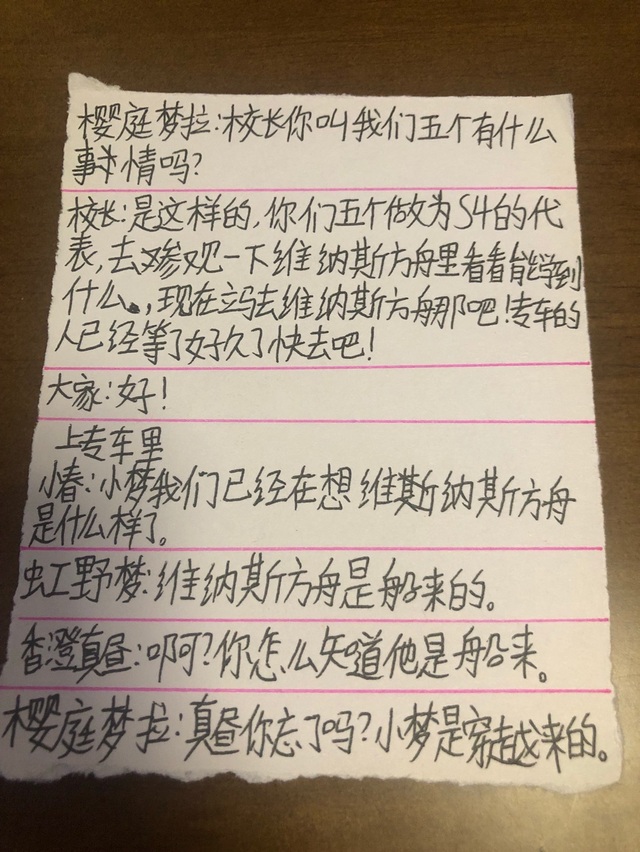 樱庭梦拉:校长你叫我们五个有什么
事情吗?
校长:是这样的,你们五个做为S4的代
表,去参观一下维纳斯方舟里看看能学到
什么。,现在立马去维纳斯方舟那吧!专车的
人已经等了好久了快去吧!
大家:好!
上专车里
小春:小梦我们已经在想维斯纳斯方舟
是什么样了。
虹野梦:维纳斯方舟是船来的。
香澄真昼:啊?你怎么知道他是船来。
樱庭梦拉:真昼你忘了吗?小梦是穿越来的。